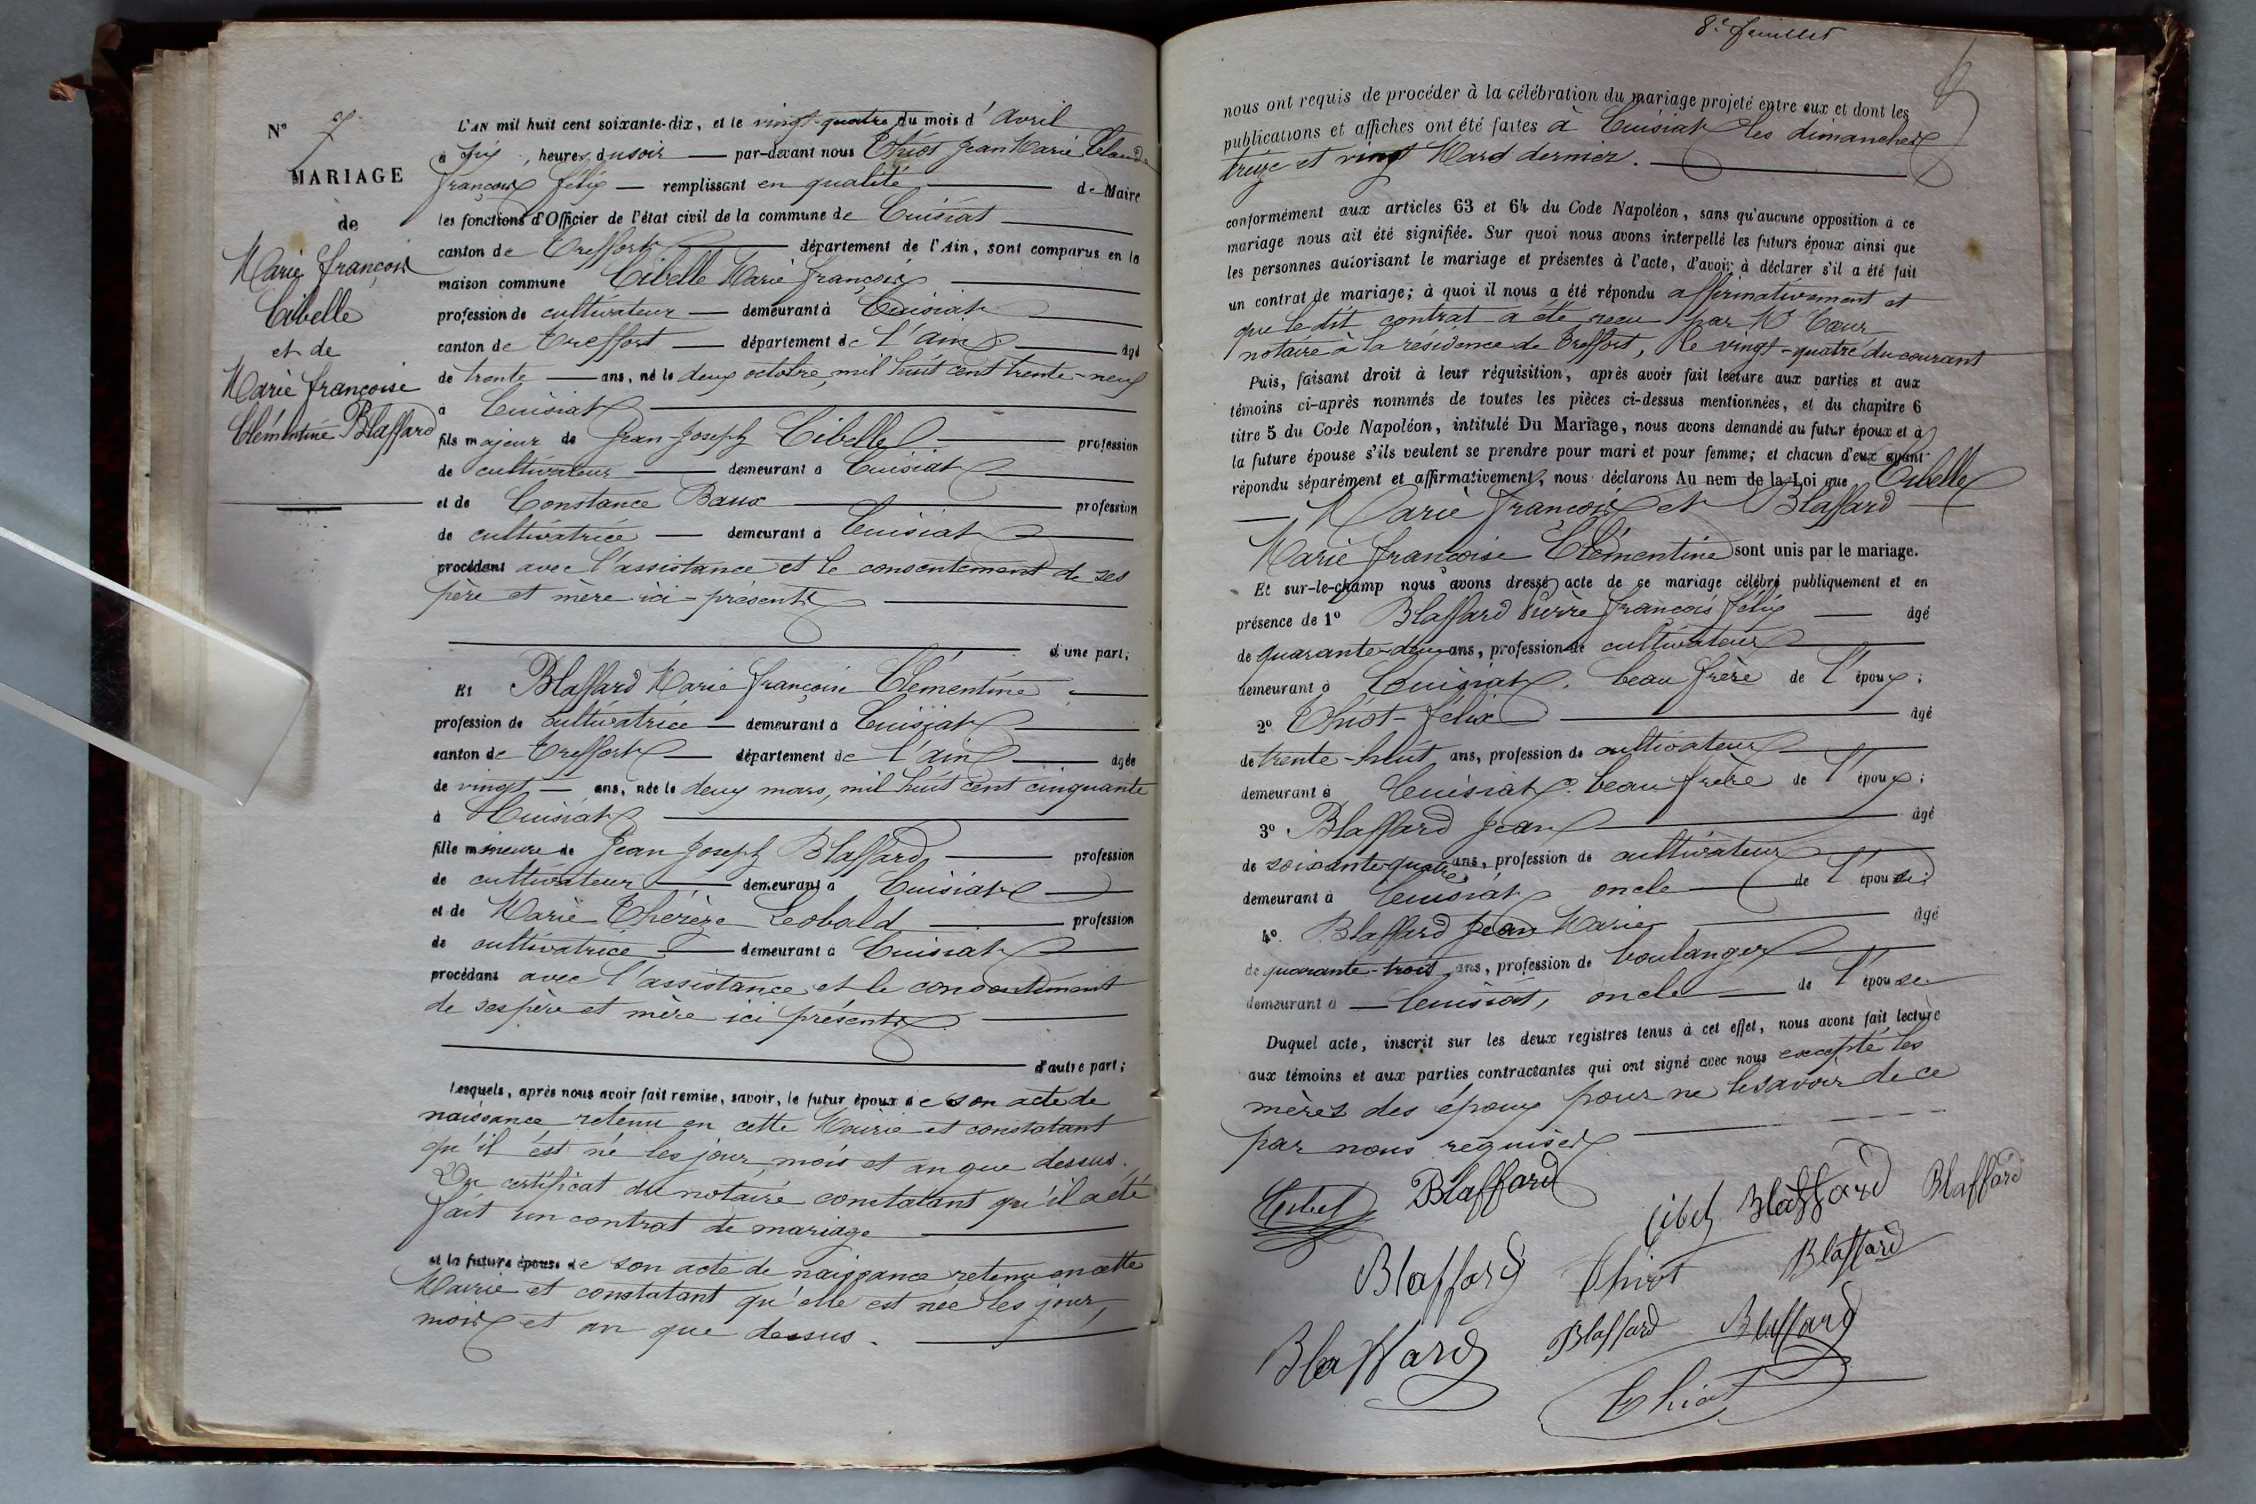 N° 7
MARIAGE
de
Marie François
Cibelle
et de
Marie Françoise
Clémentine Blaffard
L'AN mil huit cent soixante-dix, et le vingt-quatre du mois d'Avril
à six, heures du soir par-devant nous Thiot Jean Marie Claude
François Félix remplissant en qualité de Maire
les fonctions d'Officier de l'état civil de la commune de Cuisiat
canton de Treffort département de l'Ain, sont comparus en la
maison commune Cibelle Marie François
profession de cultivateur demeurant à Cuisiat
canton de Treffort département de l'Ain âgé
de trente ans, né le deux octobre, mil huit cent trente-neuf
à Cuisiat
fils majeur de Jean Joseph Cibelle profession
de cultivateur demeurant à Cuisiat
et de Constance Baux profession
de cultivatrice demeurant à Cuisiat
procédant avec l'assistance et le consentement de ses
père et mère ici-présents
d'une part;
Et Blaffard Marie Françoise Clémentine
profession de cultivatrice demeurant à Cuisiat
canton de Treffort département de l'ain âgée
de vingt ans, née le deux mars, mil huit cent cinquante
à Cuisiat
fille mineure de Jean Joseph Blaffard profession
de cultivateur demeurant à Cuisiat
et de Marie Thérèze Léobald profession
de cultivatrice demeurant à Cuisiat
procédant avec l'assistance et le consentement
de ses père et mère ici présents
d'autre part;
Lesquels, après nous avoir fait remise, savoir, le futur époux de son acte de
naissance retenu en cette Mairie et constatant
qu'il est né les jour, mois et an que dessus.
Un certificat du notaire constatant qu'il a été
fait un contrat de mariage
et la future épouse de son acte de naissance retenu en cette
Mairie et constatant qu'elle est née les jour,
mois et an que dessus.
8e feuillet
nous ont requis de procéder à la célébration du mariage projeté entre eux et dont les
publications et affiches ont été faites à Cuisiat les dimanches
treize et vingt Mars dernier.
conformément aux articles 63 et 64 du Code Napoléon, sans qu'aucune opposition à ce
mariage nous ait été signifiée. Sur quoi nous avons interpellé les futurs époux ainsi que
les personnes autorisant le mariage et présentes à l'acte, d'avoir à déclarer s'il a été fait
un contrat de mariage; à quoi il nous a été répondu affirmativement et
que le dit contrat a été reçu par Me Cœur
notaire à la résidence de Treffort, le vingt-quatre du courant
Puis, faisant droit à leur réquisition, après avoir fait lecture aux parties et aux
témoins ci-après nommés de toutes les pièces ci-dessus mentionnées, et du chapitre 6
titre 5 du Code Napoléon, intitulé Du Mariage, nous avons demandé au futur époux et à
la future épouse s'ils veulent se prendre pour mari et pour femme; et chacun d'eux ayant
répondu séparément et affirmativement, nous déclarons Au nom de la Loi que Cibelle
Marie François et Blaffard
Marie Françoise Clémentine sont unis par le mariage.
Et sur-le-champ nous avons dressé acte de ce mariage célébré publiquement et en
présence de 1° Blaffard Pierre François Félix âgé
de quarante-deux ans, profession de cultivateur
demeurant à Cuisiat, beau frère de l'époux;
2° Thiot Félix âgé
de trente-huit ans, profession de cultivateur
demeurant à Cuisiat beau frère de l'époux;
3° Blaffard Jean âgé
de soixante quatre ans, profession de cultivateur
demeurant à Cuisiat oncle de l'épouse;
4° Blaffard Jean Marie âgé
de quarante-trois ans, profession de boulanger
demeurant à Cuisiat, oncle de l'épouse
Duquel acte, inscrit sur les deux registres tenus à cet effet, nous avons fait lecture
aux témoins et aux parties contractantes qui ont signé avec nous excepté les
mères des époux pour ne le savoir de ce
par nous requises
Blaffard
Blaffard Blaffard
Blaffard Thiot Blaffard
Blaffard Blaffard Blaffard
Thiot